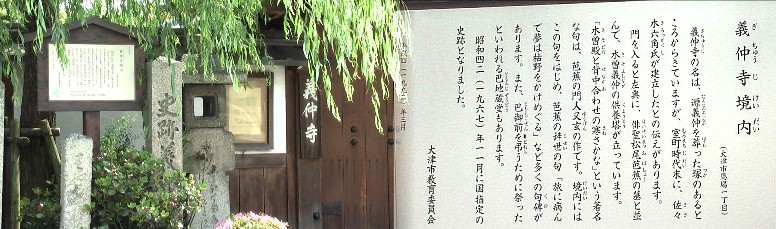 義仲寺境内
(大津市馬場一丁目)
義仲寺の名は、源義仲を葬った塚のあると
ころからきていますが、室町時代末に、佐々
木六角氏が建立したとの伝えがあります。
門を入ると左奥に、俳聖松尾芭蕉の墓と並
んで、木曽義仲の供養塔が立っています。
「木曽殿と背中合わせの寒さかな」という著名
な句は、芭蕉の門人又玄の作です。境内には
この句をはじめ、芭蕉の辞世の句「旅に病ん
で夢は枯野をかけめぐる」など多くの句碑が
あります。また、巴御前を弔うために祭った
といわれる巴地蔵堂もあります。
昭和四二(一九六七)年一一月に国指定の
史跡となりました。
大津市教育委員会
年三月
義仲寺
史跡